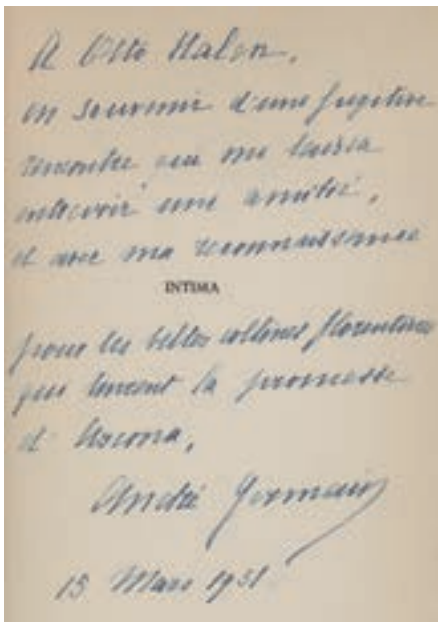 A Otto Halon,
en souvenir d'une fugitive
rencontre qui me laissa
entrevoir une amitié,
et avec ma reconnaissance
INTIMA
pour les belles collines florentines
qui tinrent la promesse
d'Ascona,
André Germain
15 Mars 1931